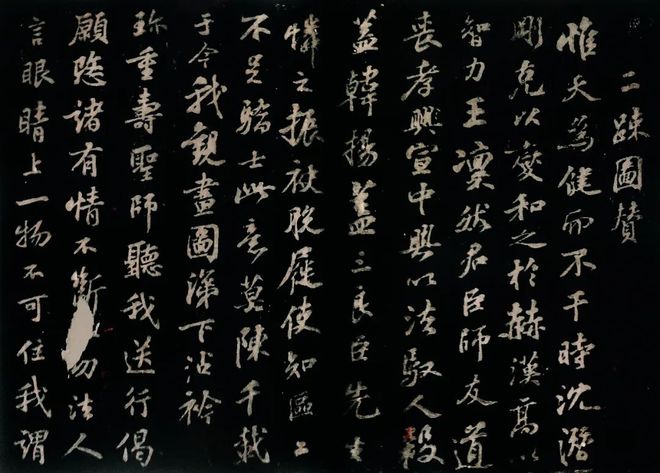 二疎圖贊
惟天爲健而不干時沈潛
剛克以燮和之於赫漢高以
智力王凜然君臣師友道
喪孝興宣中興以法馭人殺
蓋韓揚蓋三良臣先生
憐之振袂脫屣使知區〻
不足驕士此意莫陳千載
于今我觀畫圖涕下沾衿
珍重壽聖師聽我送行偈
願愍諸有情不斷法人
言眼睛上一物不可住我謂